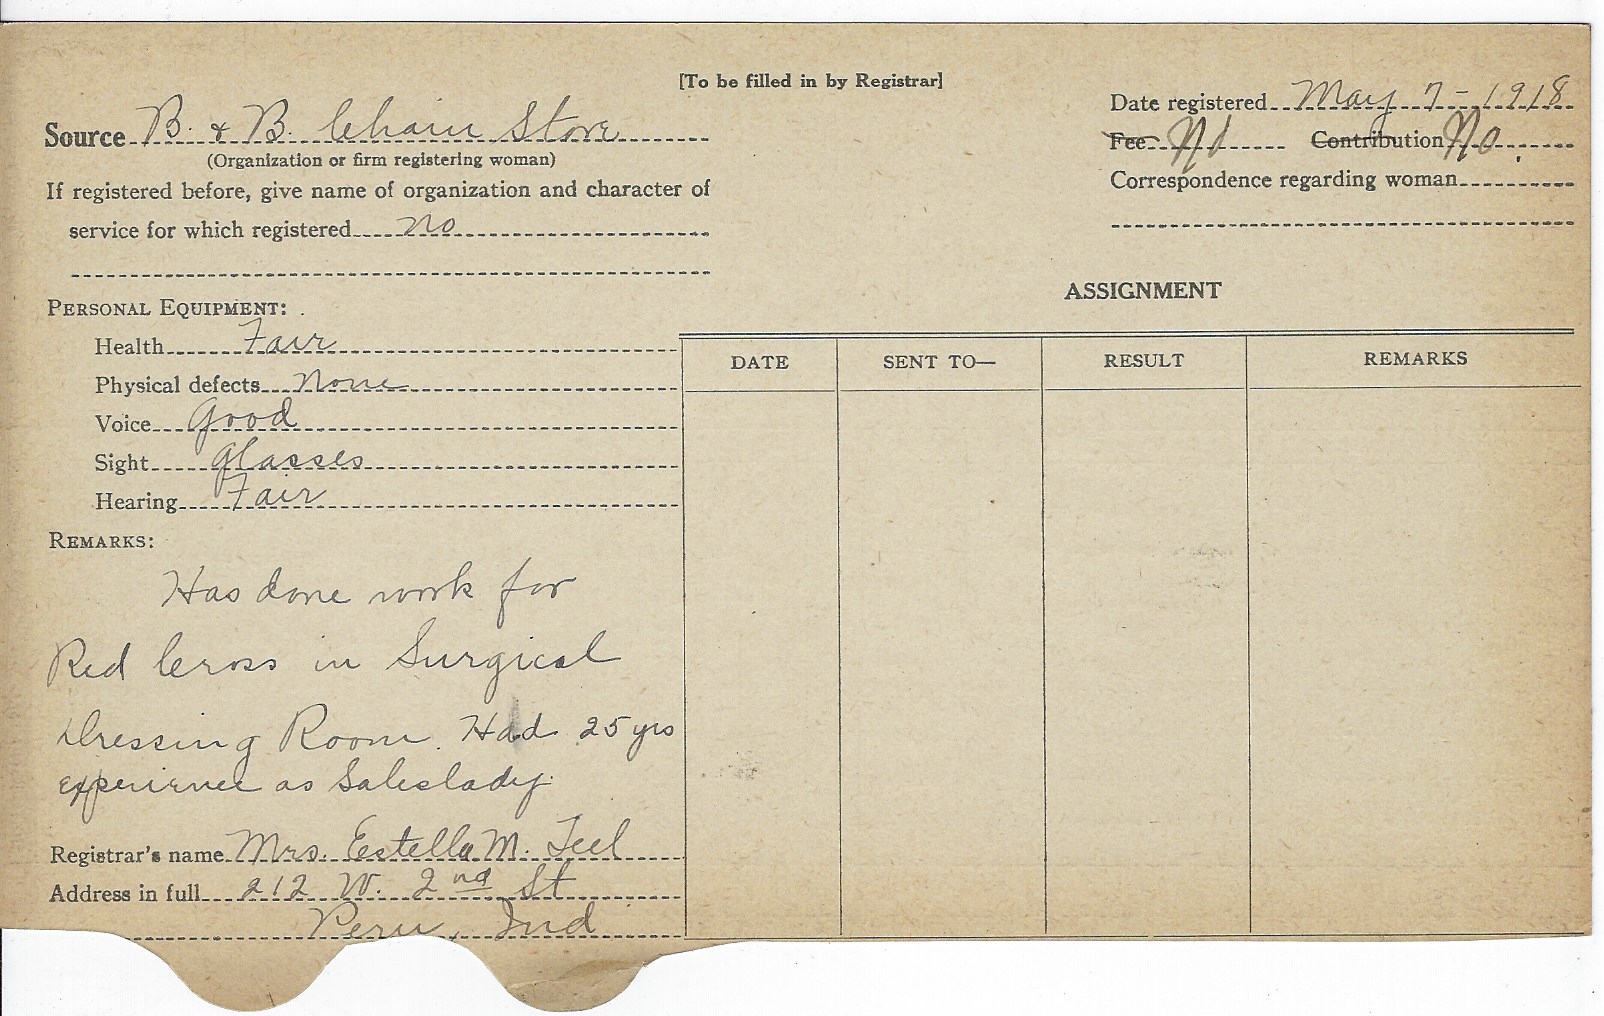 [To be filled in by Registrar]
Source B. & B. Chain Store
(Organization or firm registering woman)
If registered before, give name of organization and character of
service for which registered no
Date registered May 7 - 1918
Fee No Contribution No
Correspondence regarding woman
PERSONAL EQUIPMENT:
Health Fair
Physical defects None
Voice Good
Sight glasses
Hearing Fair
REMARKS:
Has done work for
Red Cross in Surgical
Dressing Room. Had 25 yrs
experience as Saleslady.
Registrar's name Mrs. Estella M. Teel
Address in full 212 W. 2nd St
Peru, Ind
ASSIGNMENT
DATE SENT TO— RESULT REMARKS